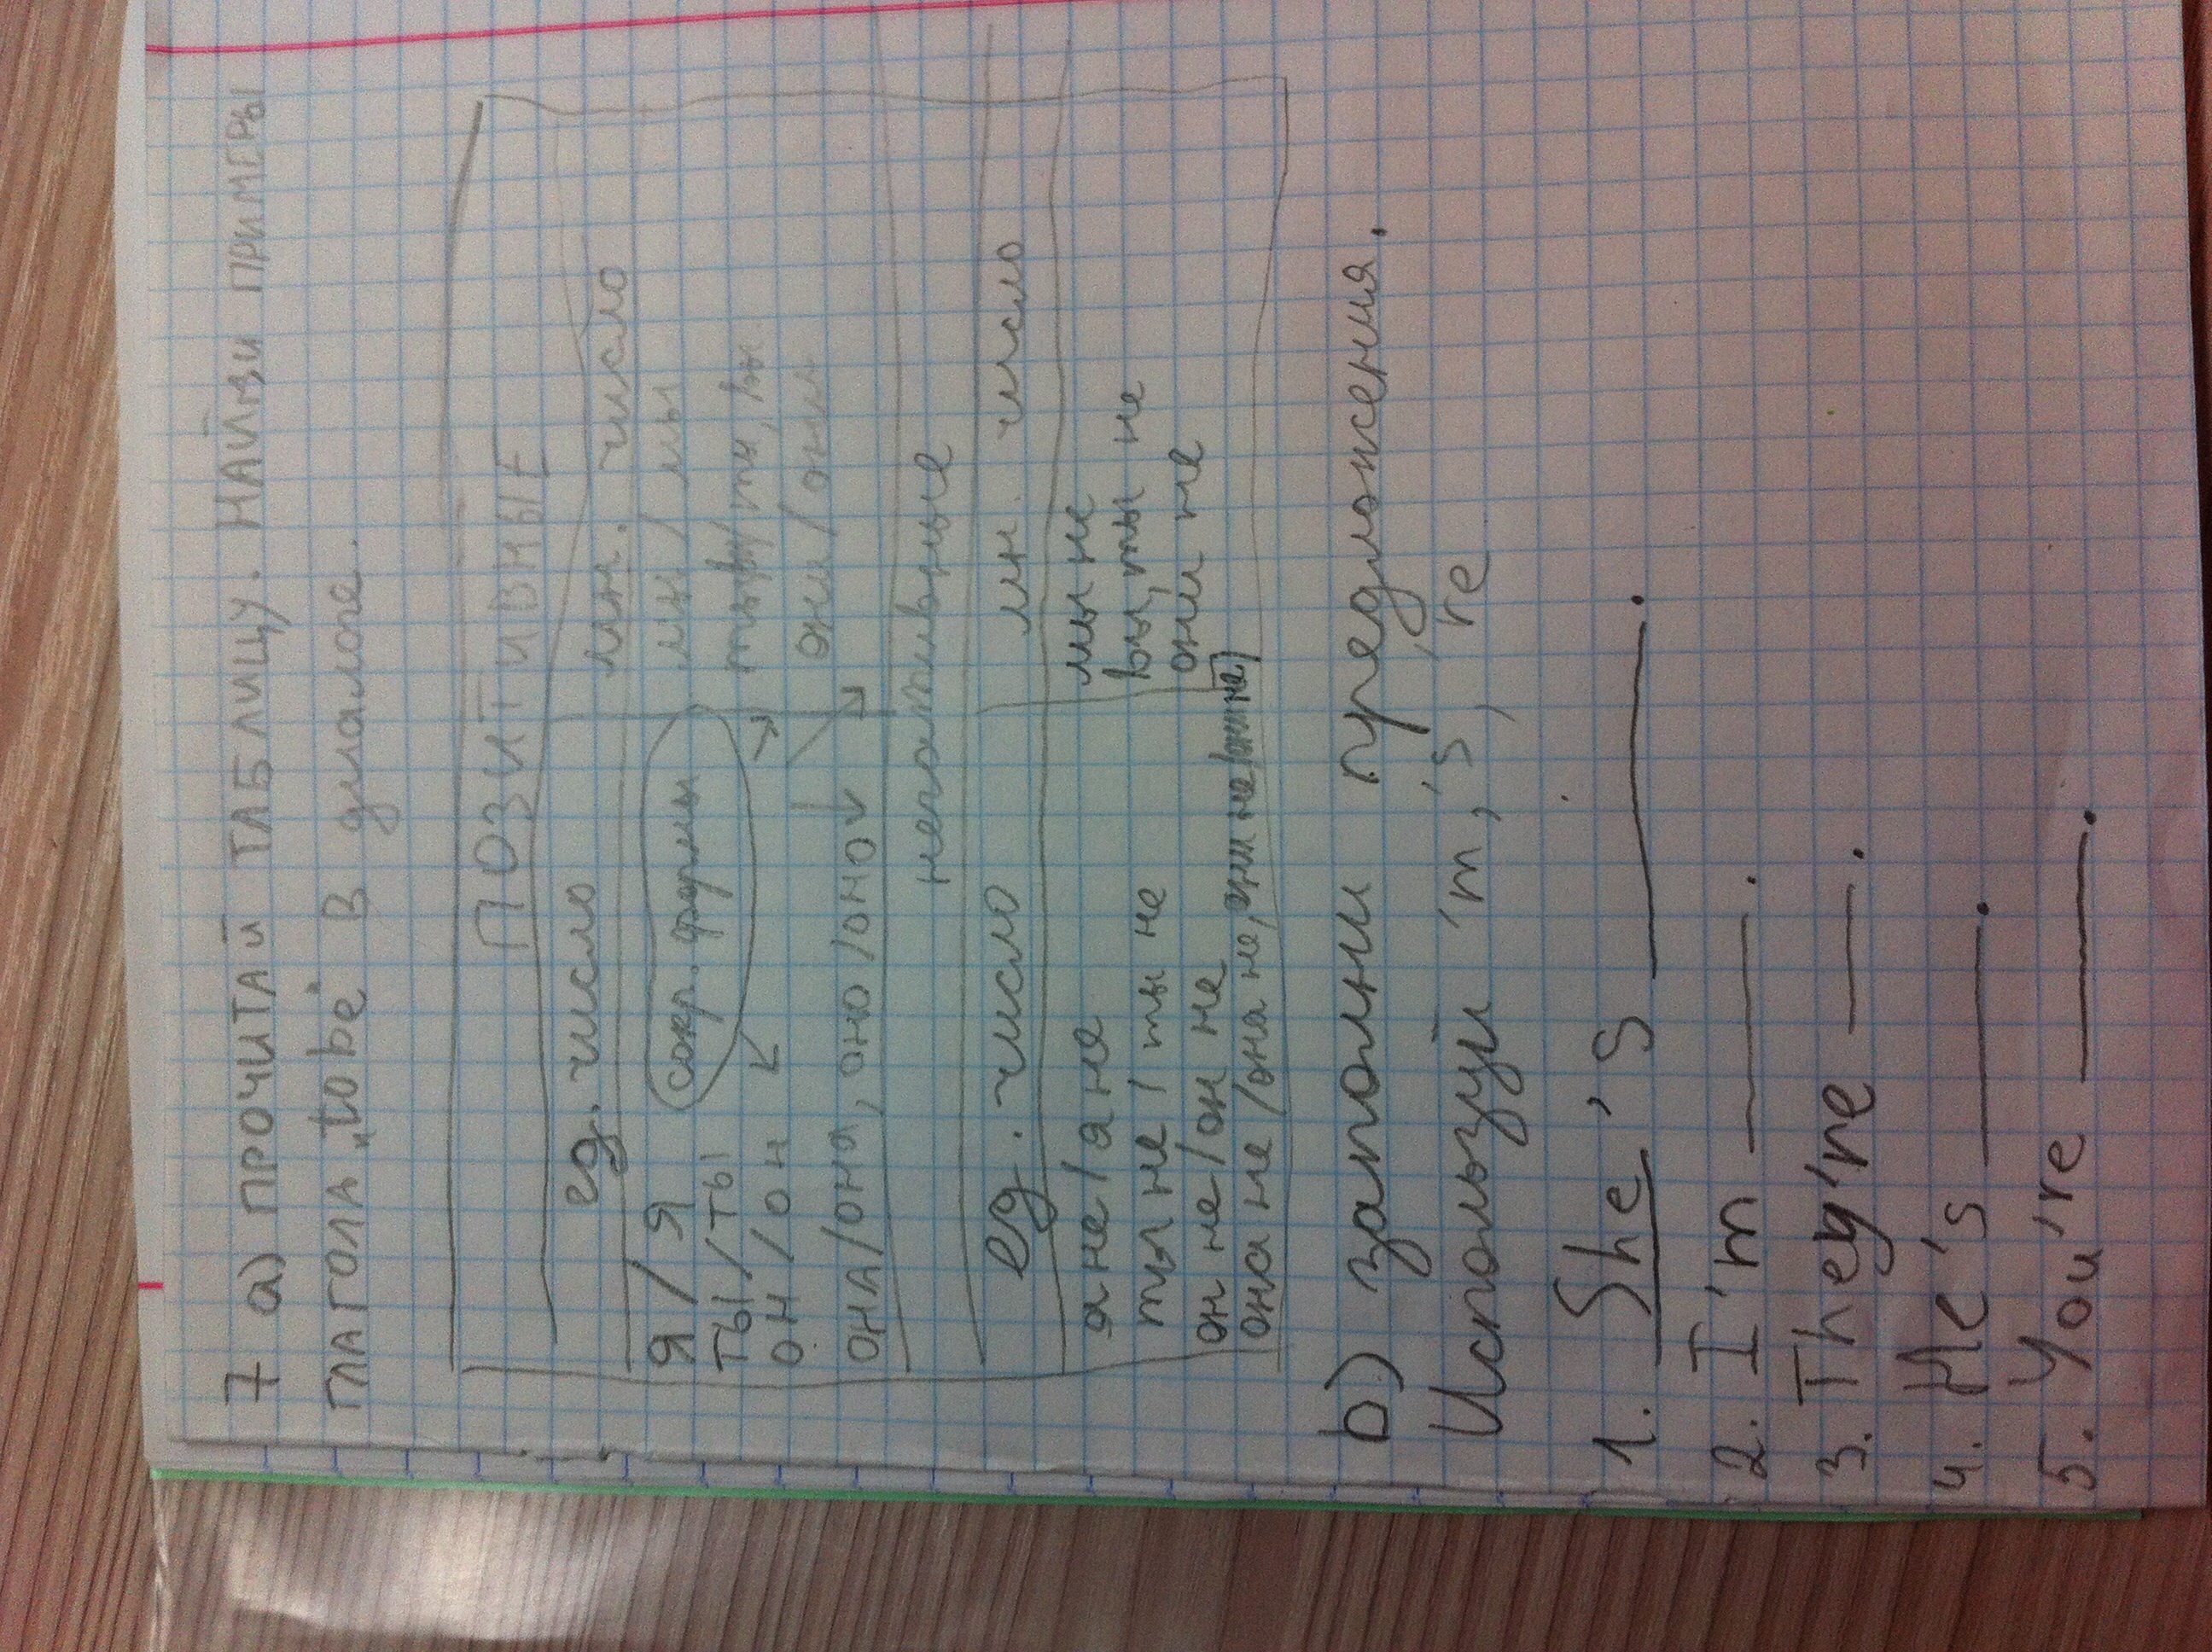 7 а) ПРОЧИТАЙ ТАБЛИЦУ. НАЙДИ ПРИМЕРЫ
ГЛАГОЛА „tobe" В диалоге.
ПОЗИТИВНЫЕ
ед. число мн. число
Я / Я сокр. формы мы / мы
ТЫ / ТЫ ты, вы
ОН / ОН они / они
ОНА/ОНА, ОНО /ОНО
негативные
ед. число мн. число
я не / я не мы не
ты не / ты не вы, ты не
он не / он не они не
она не /она не,
b) заполни предложения.
Используй 'm, 's, 're
1. She's ______.
2. I'm ______.
3. They're ____.
4. He's ______.
5. You're ______.